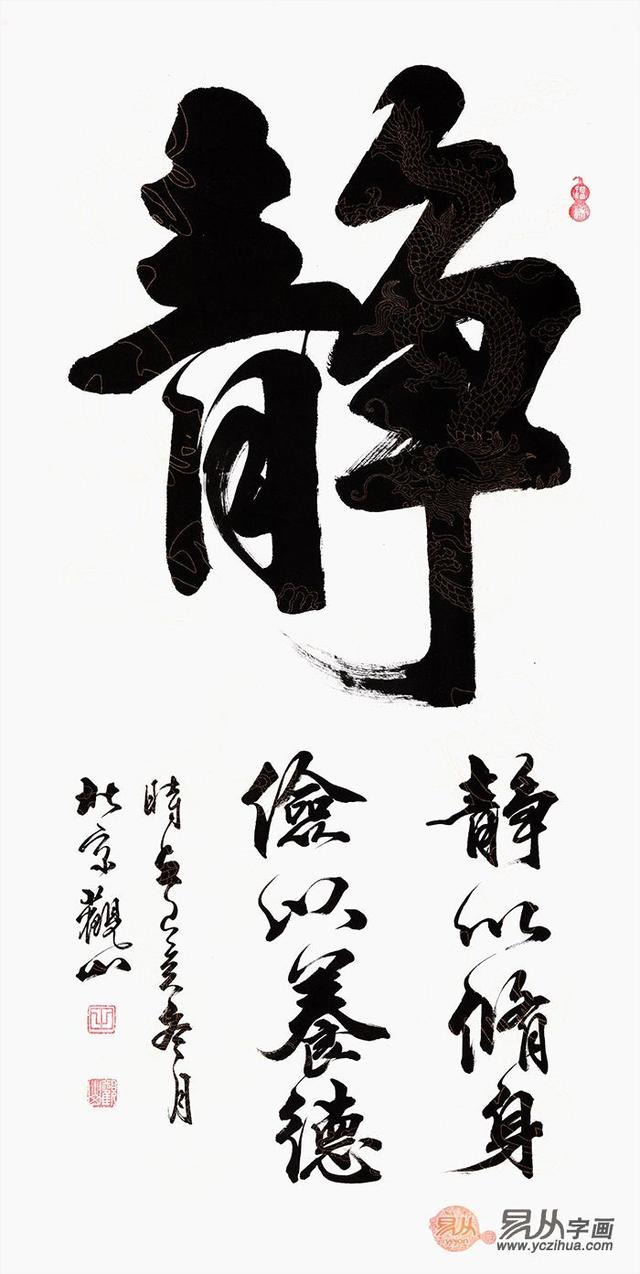 静
静以脩身
儉以養德
時在己亥冬月
北京觀山
易从字画
www.yczihua.com